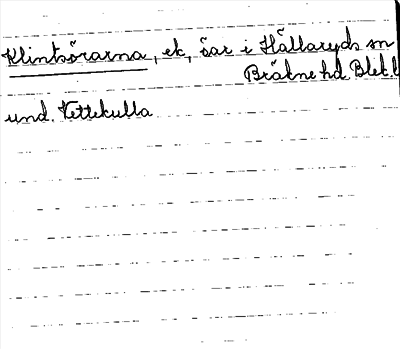 Klintsörarna, ek, öar i Hällaryds sn
Bräkne hd Blek. l
und. Vettekulla